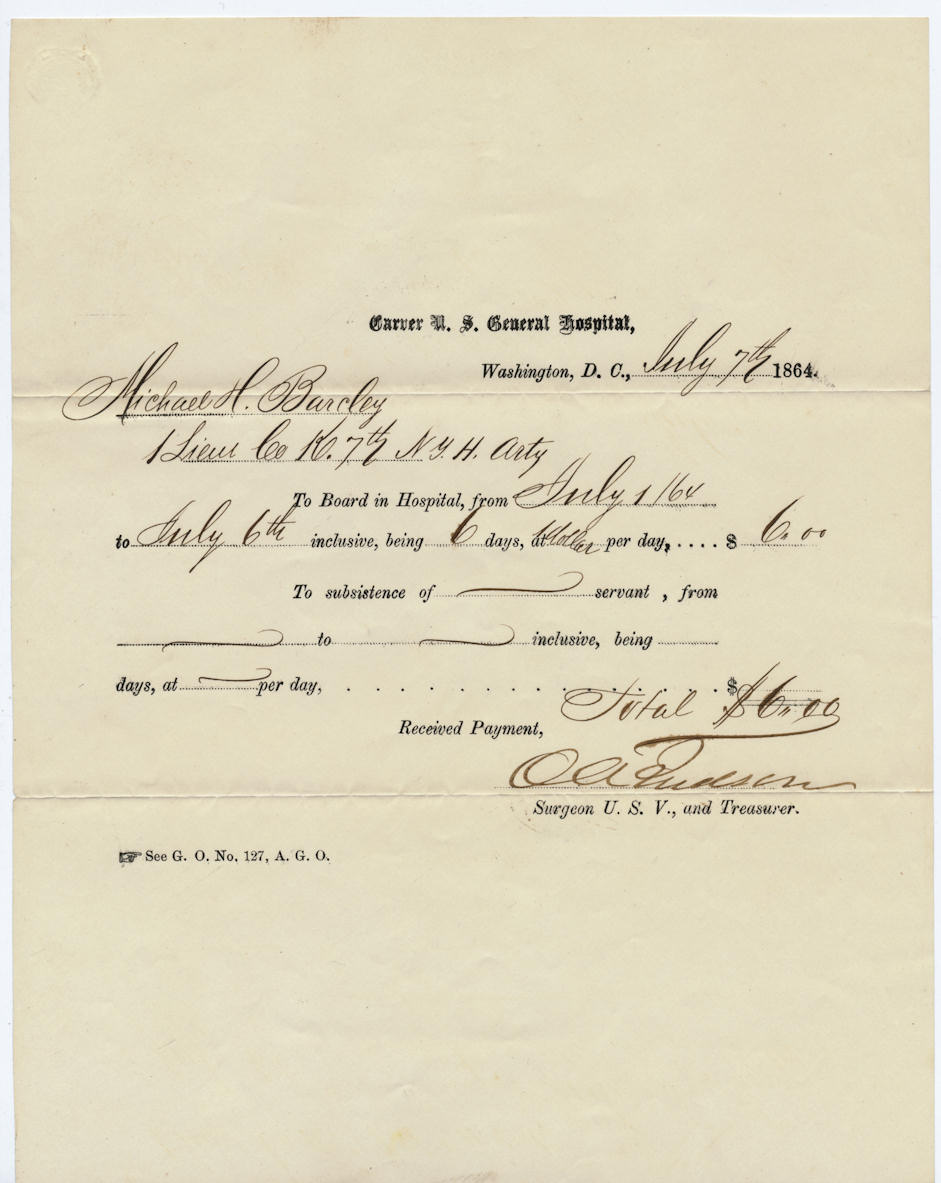 Carver U. S. General Hospital,
Washington, D. C., July 7th 1864.
Michael H. Barcley
1 Lieut Co K. 7th N.Y.H. Arty
To Board in Hospital, from July 1 /64
to July 6th inclusive, being 6 days, at 1 dollar per day, .... $ 6.00
To subsistence of servant , from
to inclusive, being
days, at per day, . . . . . . . . . $
Total $6.00
Received Payment,
O A Judson
Surgeon U. S. V., and Treasurer.
☞ See G. O. No. 127, A. G. O.